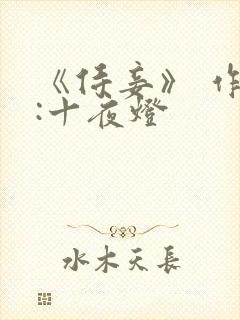 《侍妾》 作
:十夜燈
水木天長